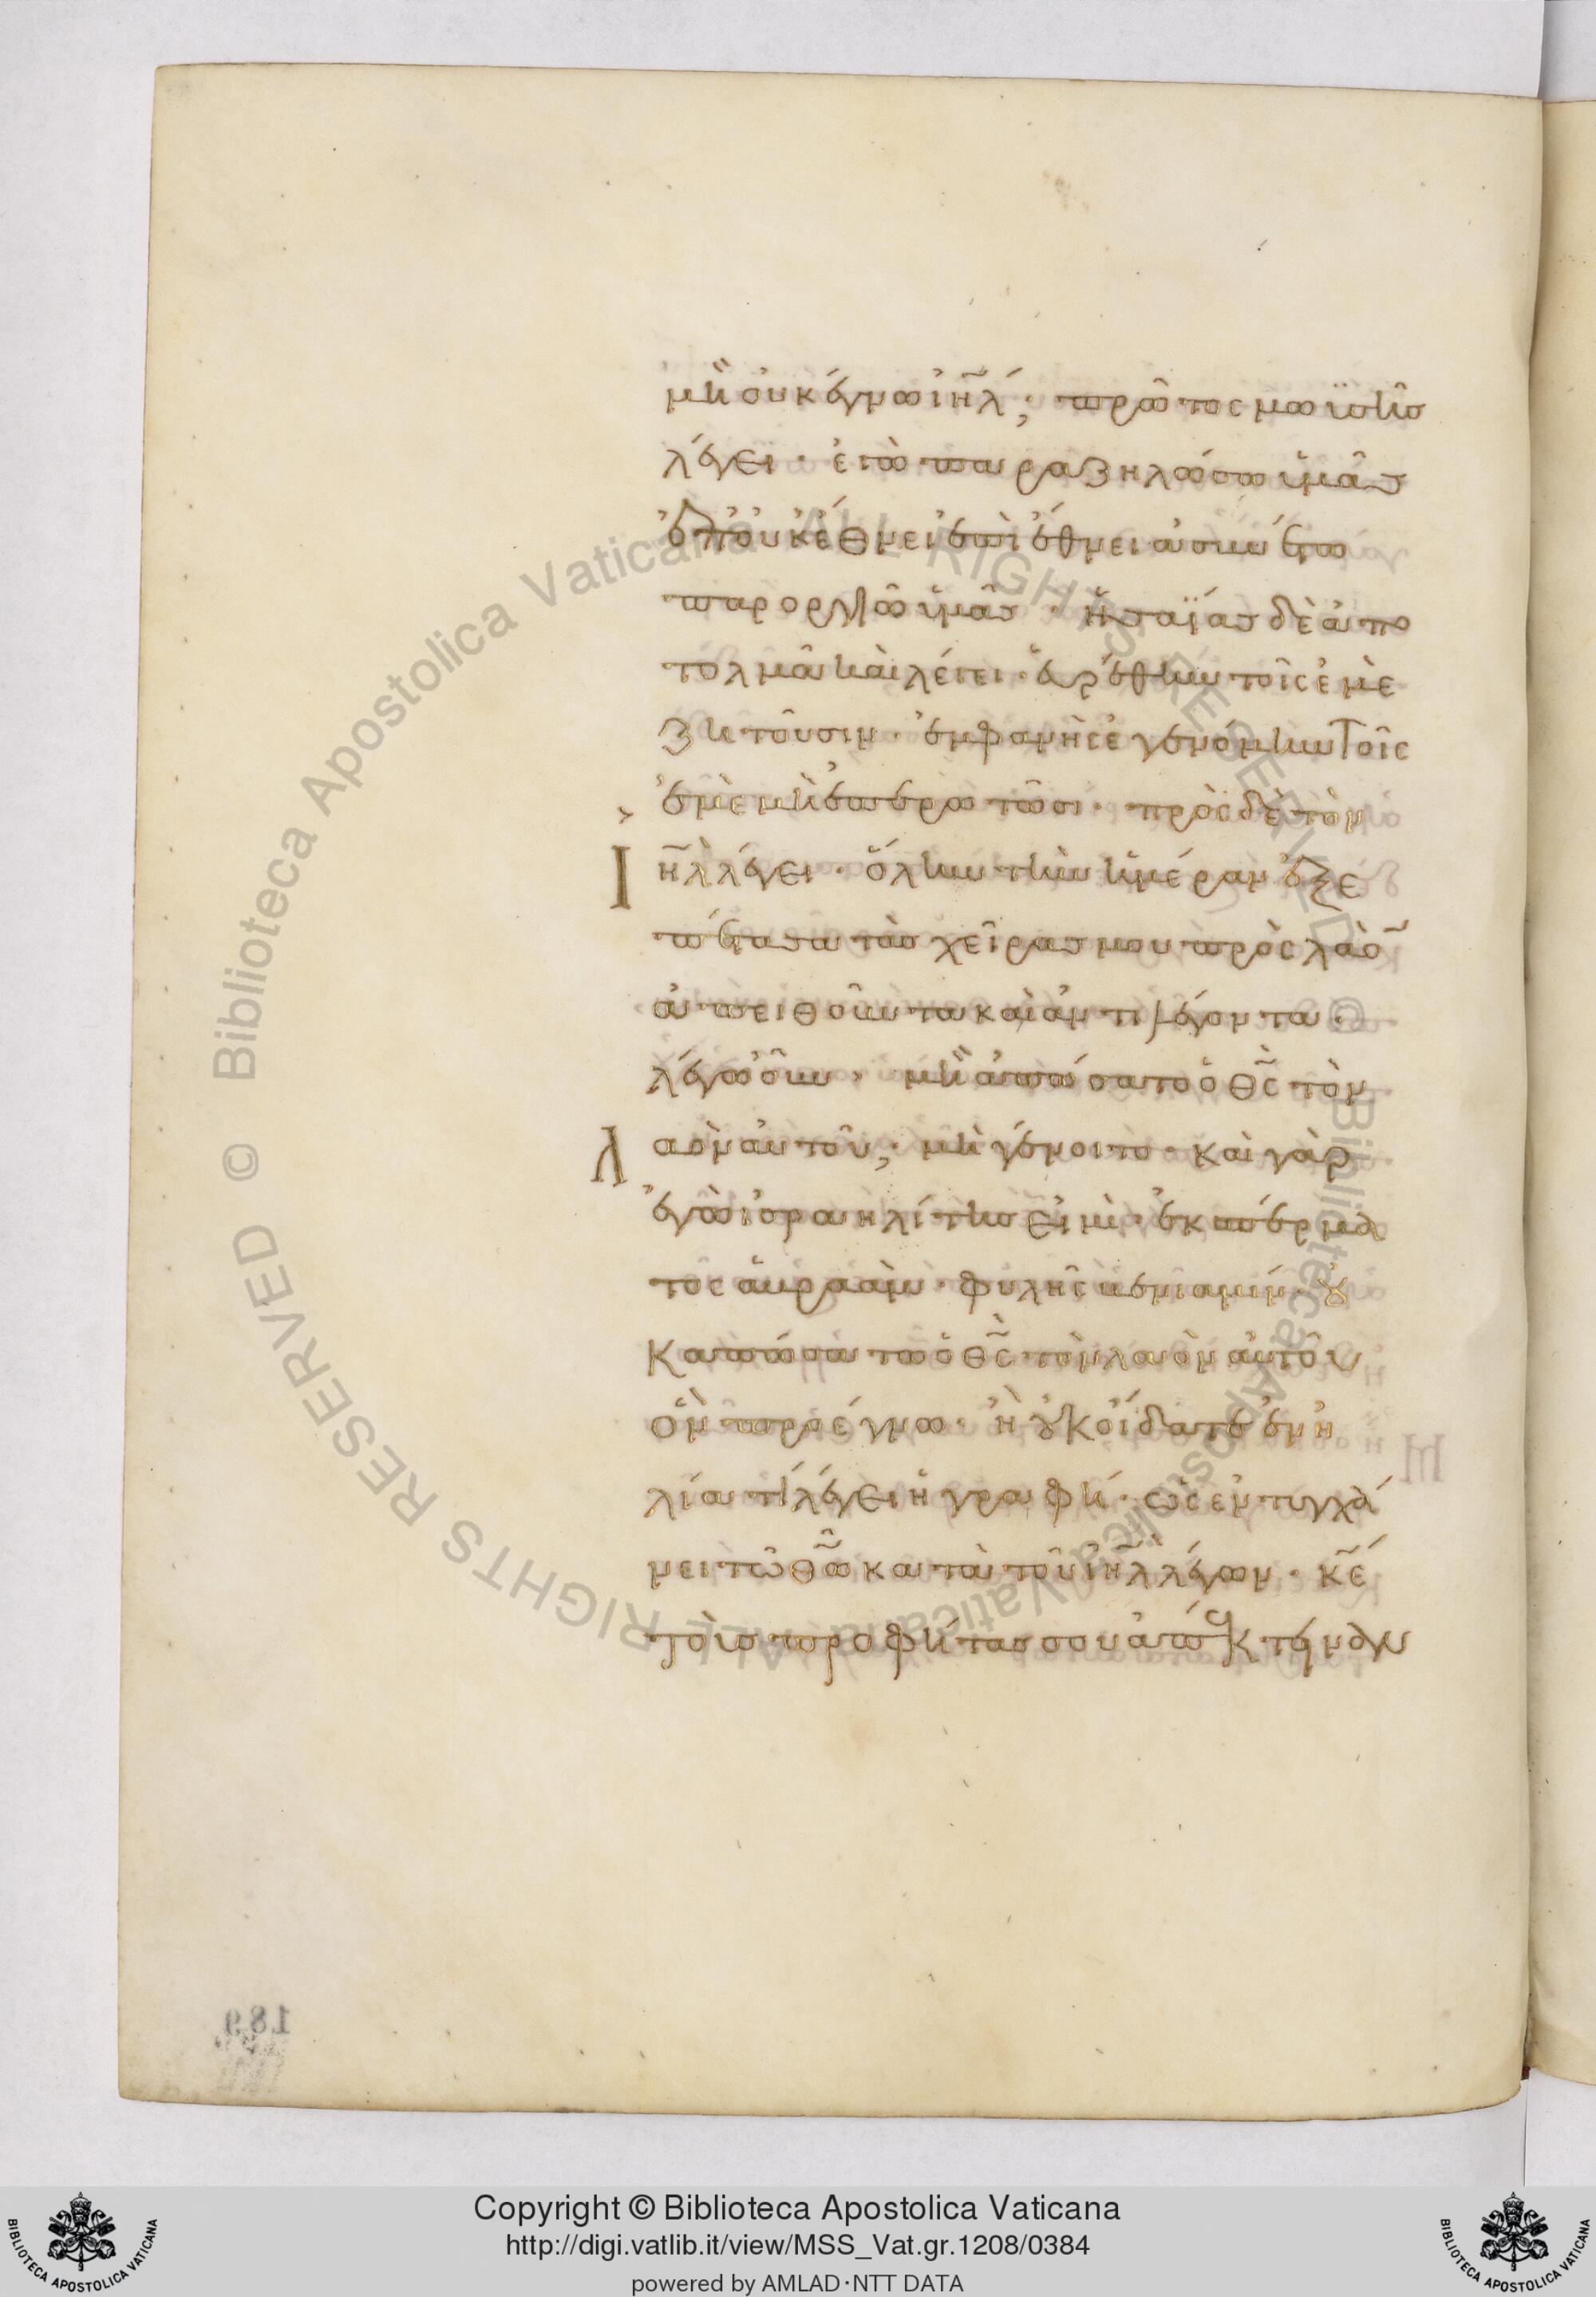 μὴ οὐκ ἔγνω ἰη̅λ; πρῶτος μωϋσῆς
λέγει· ἐγὼ παραζηλώσω ὑμᾶς
ἐπ' οὐκ ἔθνει ἐπὶ ἔθνει ἀσυνέτω
παροργιῶ ὑμᾶς· ἡσαΐας δὲ ἀπο
τολμᾶ καὶ λέγει· εὑρέθην τοῖς ἐμὲ
ζητοῦσιν· ἐμφανὴς ἐγενόμην τοῖς
ἐμὲ μὴ ἐπερωτῶσι· πρὸς δὲ τὸν
ἰη̅λ λέγει· ὅλην τὴν ἡμέραν ἐξε
πέτασα τὰς χεῖράς μου πρὸς λαὸ̅
ἀπειθοῦντα καὶ ἀντιλέγοντα·
λέγω οὖν· μὴ ἀπώσατο ὁ θ̅ς τὸν
λαὸν αὐτοῦ; μὴ γένοιτο· καὶ γὰρ
ἐγὼ ἰσραηλίτης εἰμὶ· ἐκ σπέρμα
τος ἀβραὰμ· φυλῆς βενιαμίν· οὐ
κ απώσατω ὁ θ̅ς τὸν λαὸν αὐτοῦ
ὃν προέγνω· ἢ οὐκ οἴδατε ἐν ἠ
λία τί λέγει ἡ γραφή· ὡς ἐντυγχά
νει τῶ θ̅ῶ κατὰ τοῦ ἰη̅λ λέγων· κ̅έ
τοὺς προφήτας σου ἀπέκτειναν
189
Copyright © Biblioteca Apostolica Vaticana
http://digi.vatlib.it/view/MSS_Vat.gr.1208/0384
powered by AMLAD·NTT DATA
© Biblioteca Apostolica Vaticana ALL RIGHTS RESERVED © Biblioteca Apostolica Vaticana ALL RIGHTS RESERVED
BIBLIOTECA APOSTOLICA VATICANA
BIBLIOTECA APOSTOLICA VATICANA